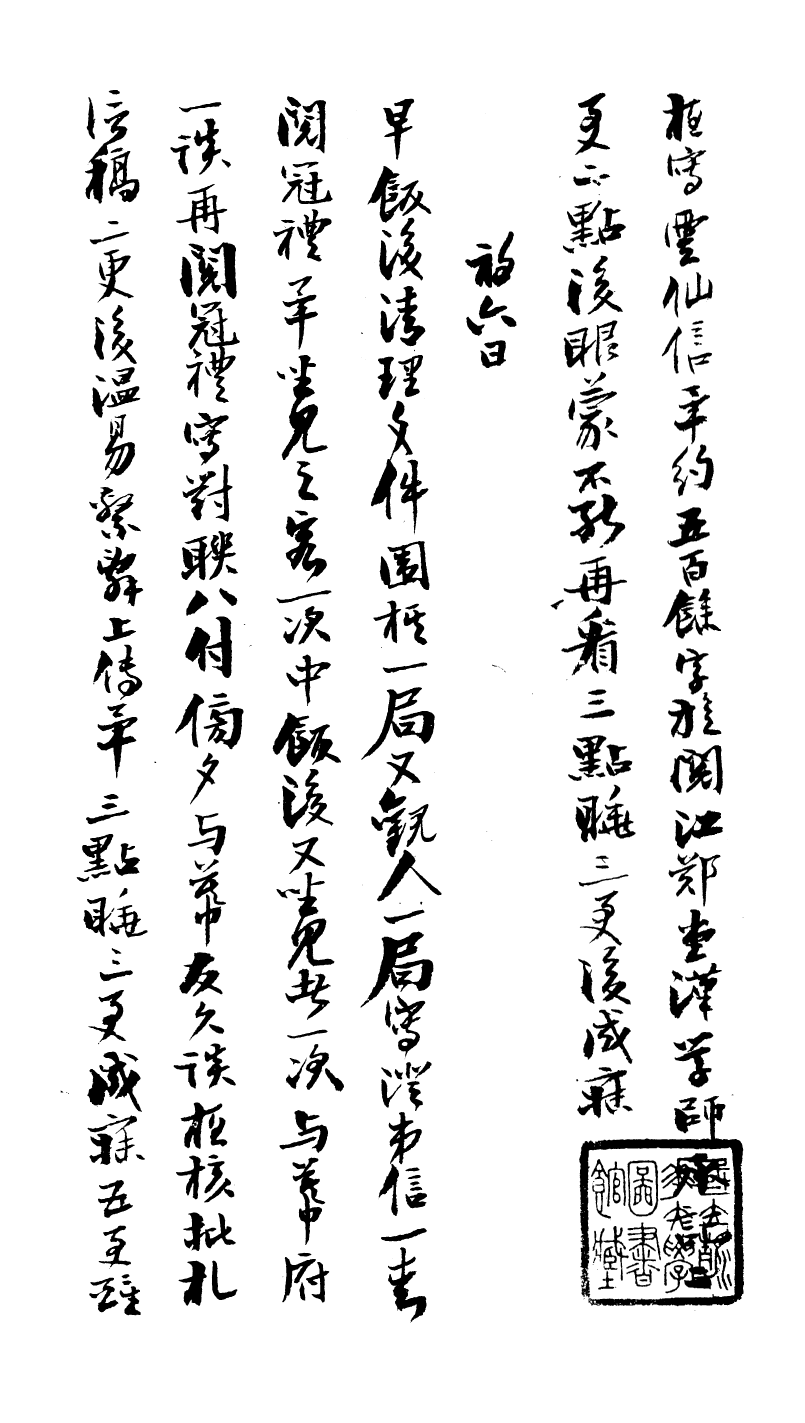 夜寫雲仙信畢約五百餘字旋閱江鄭堂漢學師承
更二點後眼蒙不敢再看三點睡三更後成寐
初六日
早飯後清理文件圍棋一局又觀人一局寫澄弟信一封
閱冠禮畢坐見之客一次中飯後又坐見者一次與幕府
一談再閱冠禮寫對聯八付傍夕與幕友久談夜核批札
信稿二更後溫易繫辭上傳畢三點睡三更成寐五更醒
圖書館藏